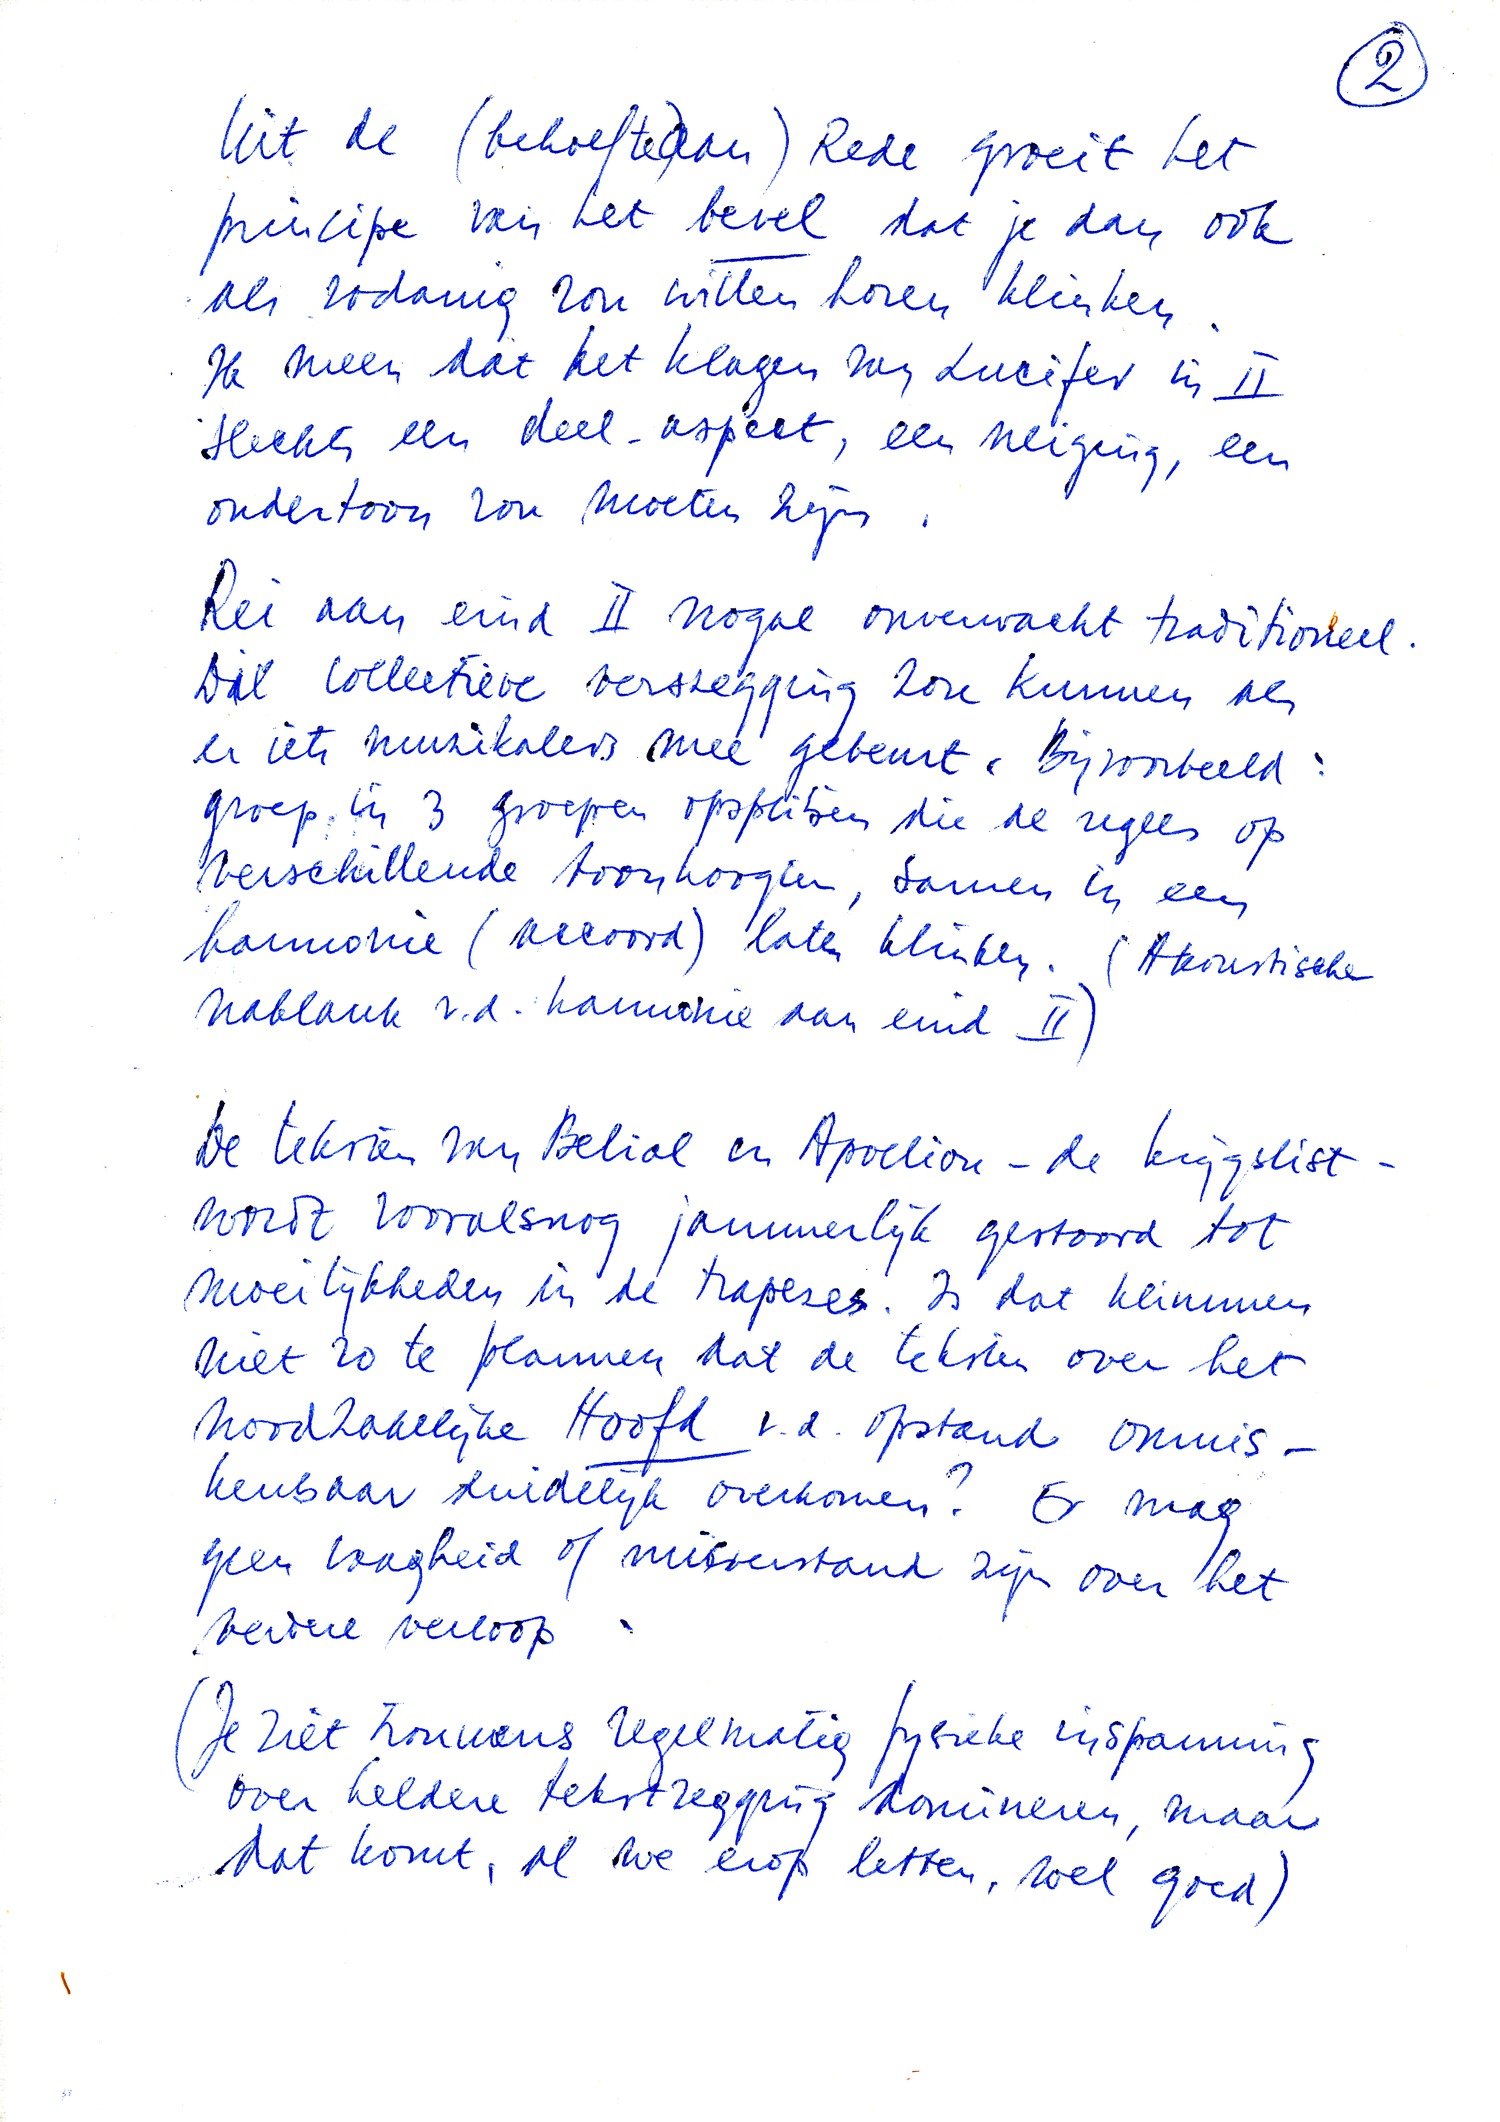 2
Uit de (behoefte aan) Rede groeit het
principe van het bevel dat je dan ook
als zodanig zou willen horen klinken.
Ik meen dat het klagen van Lucifer in II
slechts een deel-aspect, een neiging, een
ondertoon zou moeten zijn.
Rei aan eind II nogal onverwacht traditioneel.
Die collectieve verszegging zou kunnen als
er iets muzikalers mee gebeurt. Bijvoorbeeld:
groep in 3 groepen opsplitsen die de regels op
verschillende toonhoogten, samen in een
harmonie (accoord) laten klinken. (Akoustische
naklank v.d. harmonie aan eind II)
De teksten van Belial en Apollion - de krijgslist -
wordt vooralsnog jammerlijk gestoord tot
moeilijkheden in de trapezes. Is dat klimmen
niet zo te plannen dat de teksten over het
noodzakelijke Hoofd v.d. opstand onmis-
kenbaar duidelijk overkomen? Er mag
geen vaagheid of misverstand zijn over het
verdere verloop.
(Je ziet trouwens regelmatig fysieke inspanning
over heldere tekstzegging domineren, maar
dat komt, al we erop letten, wel goed)